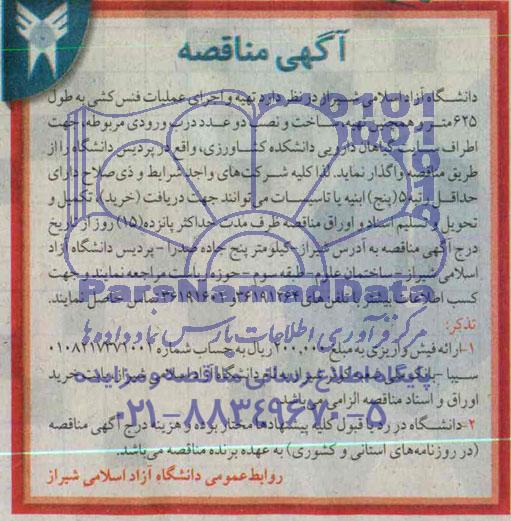 آگهی مناقصه
دانشگاه آزاد اسلامی شیراز در نظر دارد تهیه و اجرای عملیات فنس کشی به طول
۶۲۵ متر و همچنین تهیه، ساخت و نصب دو عدد درب ورودی مربوطه، جهت
اطراف سایت گیاهان دارویی دانشکده کشاورزی، واقع در پردیس دانشگاه را از
طریق مناقصه واگذار نماید. لذا کلیه شرکت‌های واجد شرایط و ذی‌صلاح دارای
حداقل رتبه ۵ (پنج) ابنیه یا تاسیسات می‌توانند جهت دریافت (خرید)، تکمیل و
تحویل و تسلیم اسناد و اوراق مناقصه ظرف مدت حداکثر پانزده (۱۵) روز از تاریخ
درج آگهی مناقصه به آدرس شیراز- کیلومتر پنج جاده صدرا - پردیس دانشگاه آزاد
اسلامی شیراز - ساختمان علوم - طبقه سوم - حوزه ریاست مراجعه نمایند و جهت
کسب اطلاعات بیشتر با تلفن های ۳۶۱۹۱۲۶۴ و ۳۶۱۹۱۶۰۲ تماس حاصل نمایند.
ParsNamadData
تذکر:
مرکز فرآوری اطلاعات پارس نماد داده‌ها
۱- ارائه فیش واریزی به مبلغ ۲۰۰,۰۰۰ ریال به حساب شماره
سیبا - بانک ملی به نام دانشگاه آزاد اسلامی شیراز بابت خرید
پایگاه اطلاع رسانی مناقصه و مزایده
اوراق و اسناد مناقصه الزامی می‌باشد.
۰۲۱-۸۸۳۴۹۶۷۰-۵
۲- دانشگاه در رد یا قبول کلیه پیشنهادها مختار بوده و هزینه درج آگهی مناقصه
(در روزنامه‌های استانی و کشوری) به عهده برنده مناقصه می‌باشد.
روابط عمومی دانشگاه آزاد اسلامی شیراز